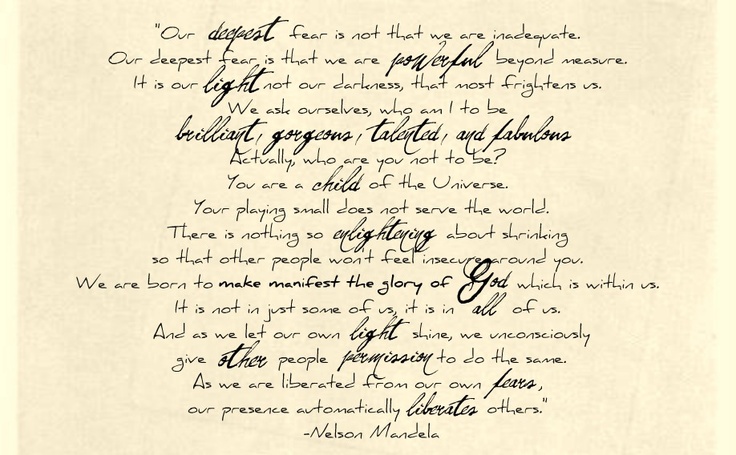 "Our deepest fear is not that we are inadequate.
Our deepest fear is that we are powerful beyond measure.
It is our light not our darkness, that most frightens us.
We ask ourselves, who am I to be
brilliant, gorgeous, talented, and fabulous
Actually, who are you not to be?
You are a child of the Universe.
Your playing small does not serve the world.
There is nothing so enlightening about shrinking
so that other people won't feel insecure around you.
We are born to make manifest the glory of God which is within us.
It is not in just some of us, it is in all of us.
And as we let our own light shine, we unconsciously
give other people permission to do the same.
As we are liberated from our own fears,
our presence automatically liberates others."
-Nelson Mandela